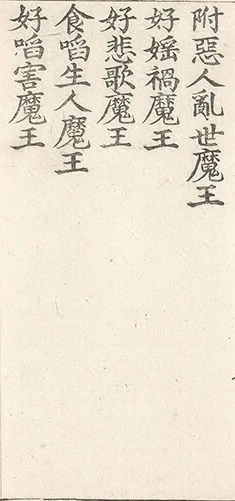 附惡人亂世魔王
好婬禍魔王
好悲歌魔王
食啗生人魔王
好啗害魔王